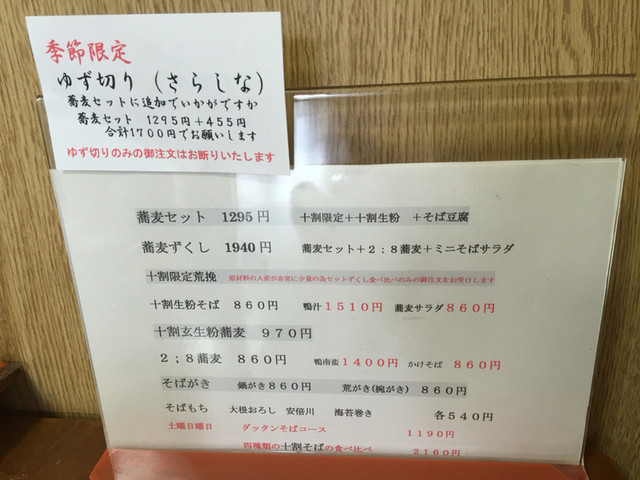 季節限定
ゆず切り（さらしな）
蕎麦セットに追加でいかがですか
蕎麦セット 1295円＋455円
合計1700円でお願いします
ゆず切りのみの御注文はお断りいたします
蕎麦セット 1295円 十割限定＋十割生粉 ＋そば豆腐
蕎麦ずくし 1940円 蕎麦セット＋２：８蕎麦＋ミニそばサラダ
十割限定荒挽 原材料の入荷が非常に少量の為セットずくし食べ比べのみの御注文をお受けします
十割生粉そば ８６０円 鴨汁１５１０円 蕎麦サラダ８６０円
十割玄生粉蕎麦 ９７０円
２；８蕎麦 ８６０円 鴨南蛮１４００円 かけそば ８６０円
そばがき 鍋がき８６０円 荒がき(椀がき) ８６０円
そばもち 大根おろし 安倍川 海苔巻き 各５４０円
土曜日曜日 ダッタンそばコース １１９０円
四種類の十割そばの食べ比べ ２１６０円